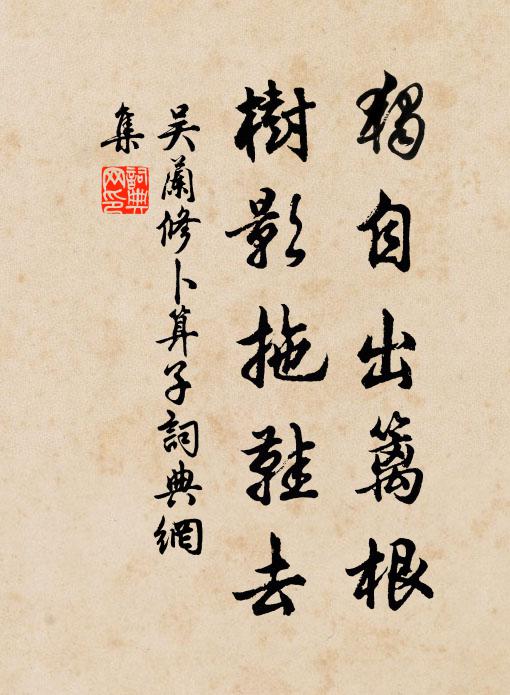 獨自出籬根
樹影拖鞋去
吳蘭修卜算子詞典網
集
詞典
网印